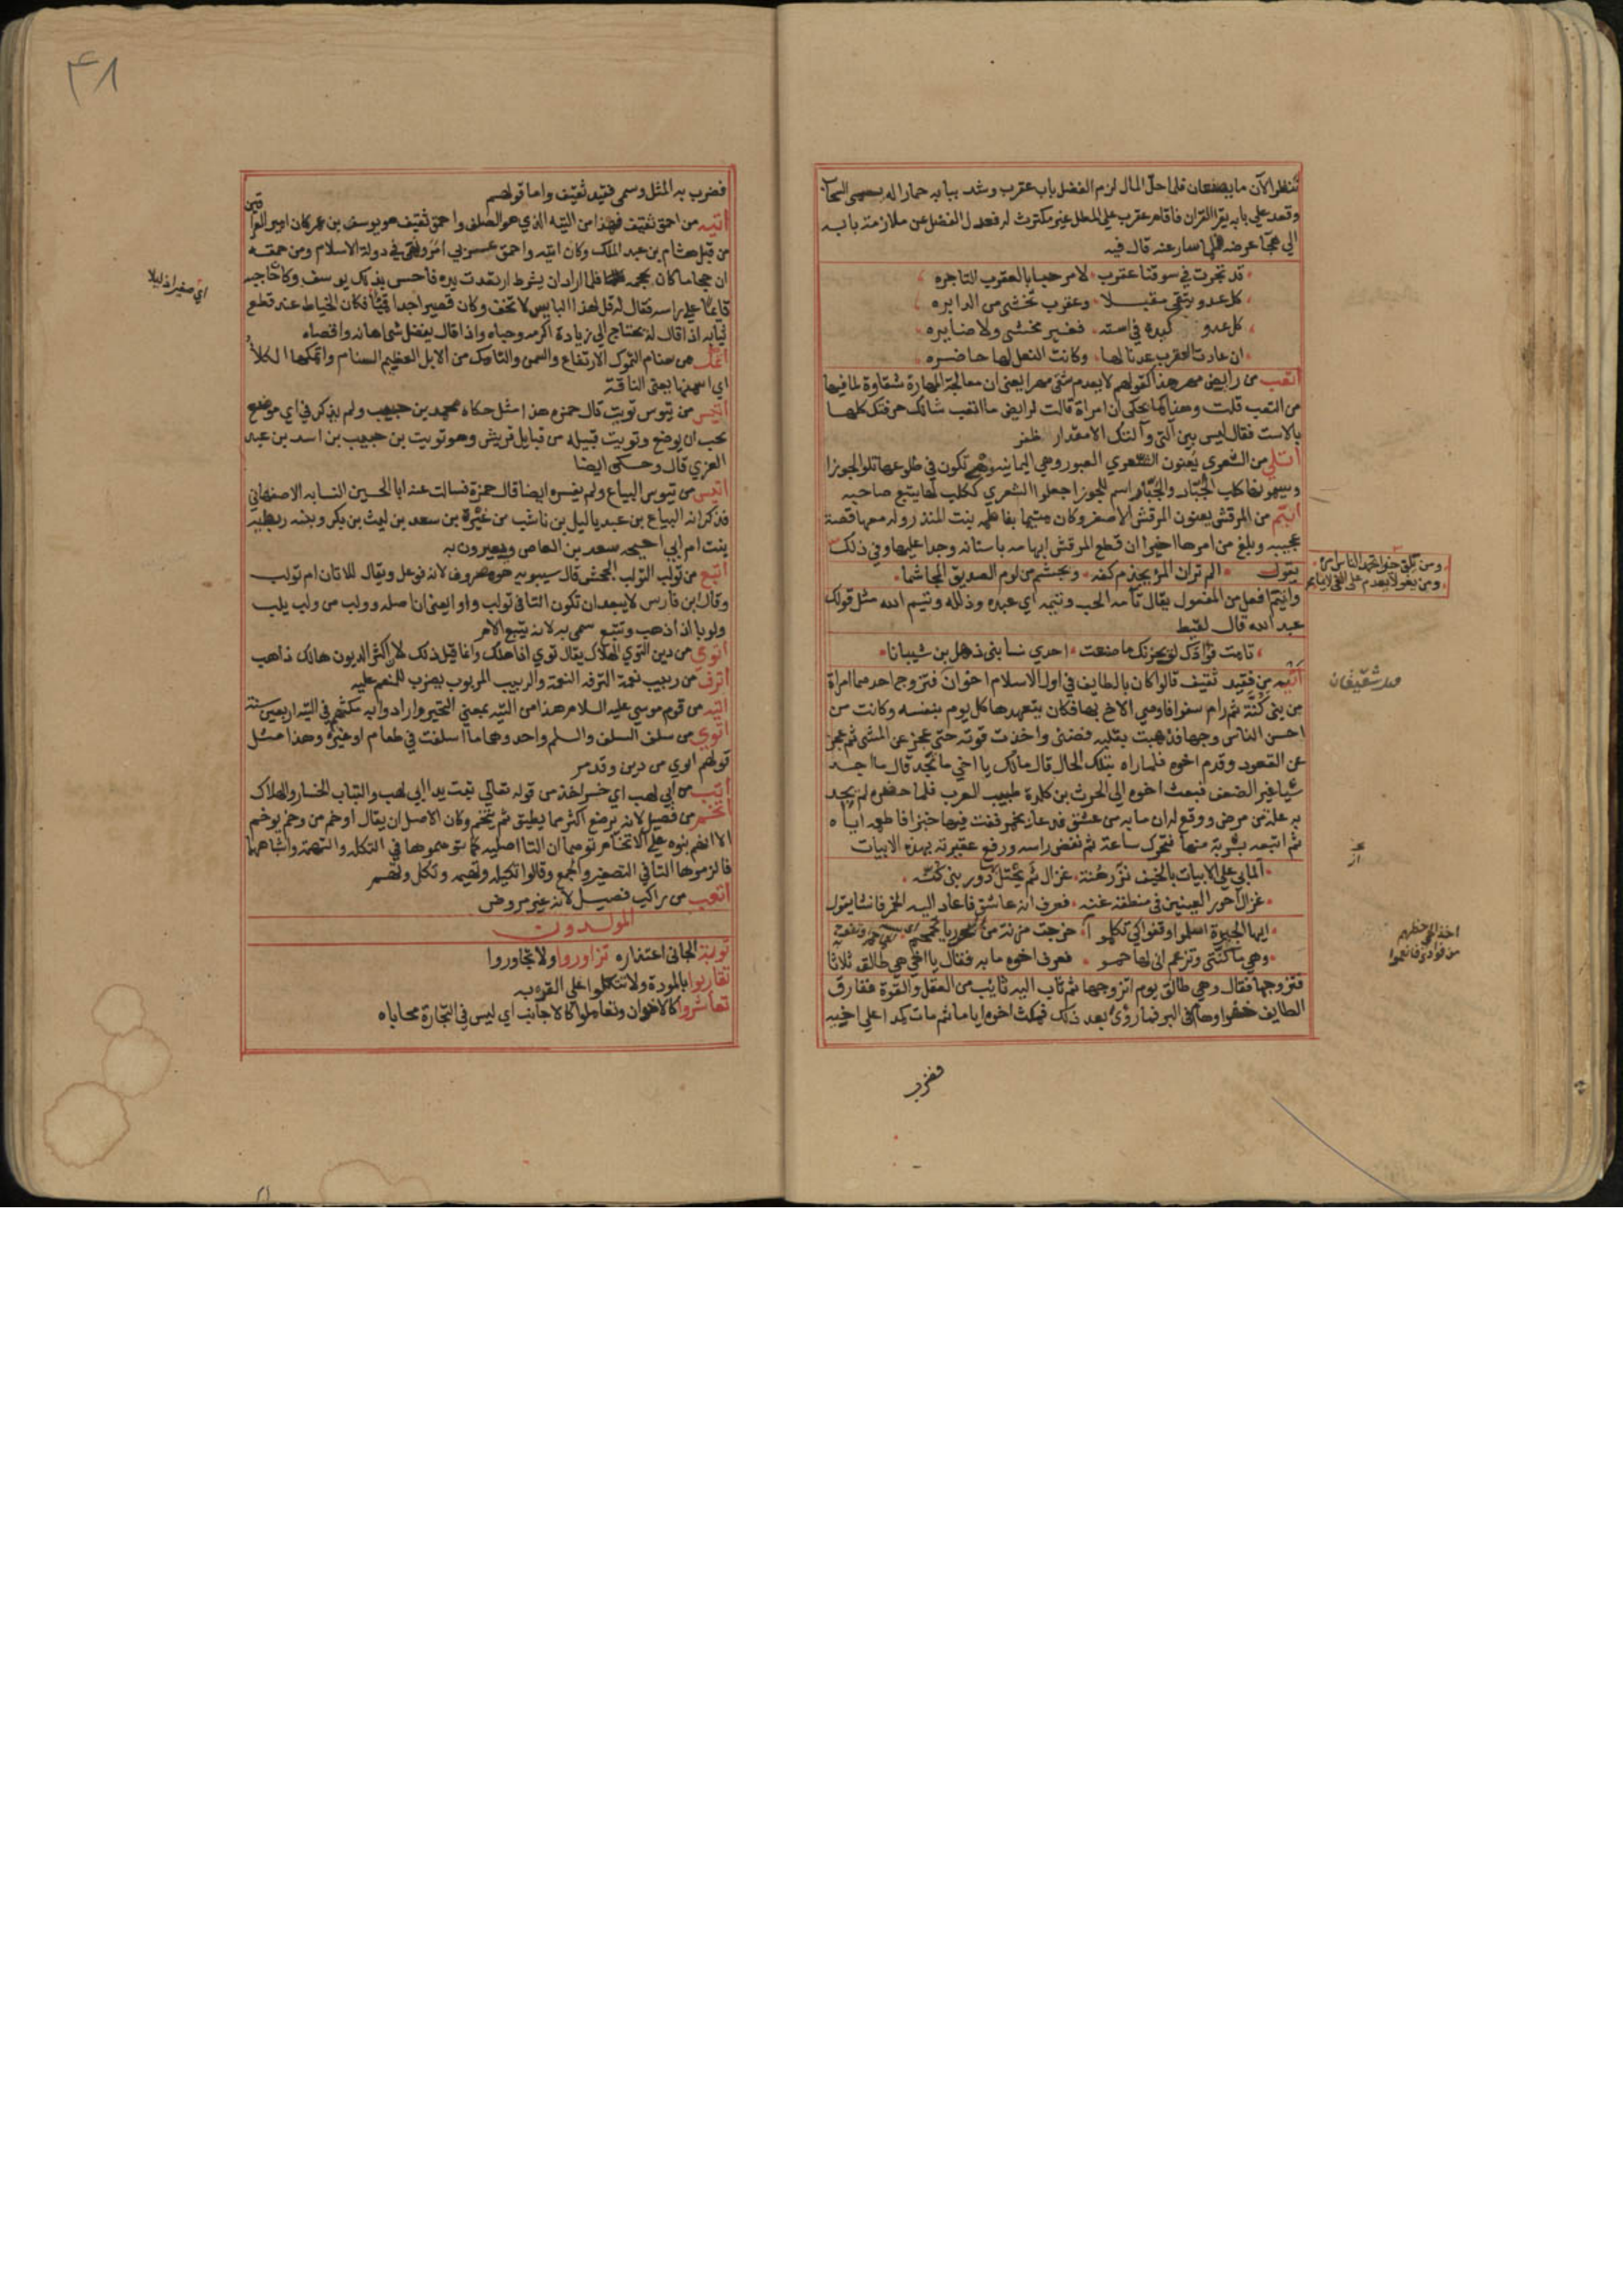 تنظر الآن ما يصنعان فلما حل المال لزم الفضل باب عقرب وشد ببابه حمارا له يسمى السحاب
وقعد على بابه يقرا القران فاقام عقرب على المطل غير مكترث له فعدل الفضل عن ملازمة بابه
الى هجآ عرضه فلما سار عنه قال فيه
قد تجرت في سوقنا عقرب لا مرحبا بالعقرب التاجره
كل عدو يتقى مقبلا وعقرب تخشى من الدابره
كل عدو كيده في استه فغير مخشى ولا ضايره
ان عادت العقرب عدنا لها وكانت النعل لها حاضره
اتعب من رايض مهر هذا كقولهم لا يعدم شقى مهرا يعنى ان معالجة المهارة شقاوة لما فيها
من التعب قلت وهذا كما يحكى ان امراة قالت لرايض ما اتعب شانك حرفتك كلها
بالاست فقال ليس بين آلتى وآلتك الا مقدار ظفر
اتلى من الشعرى يعنون الشعرى العبور وهى اليمانيه فهى تكون فى طلوعها تلو الجوزا
ويسمونها كلب الجبار والجبار اسم للجوزا جعلوا الشعرى ككلب لها يتبع صاحبه
اتيم من المرقش يعنون المرقش الاصغر وكان متيما بفاطمه بنت المنذر وله معها قصة
عجيبه وبلغ من امرها اخيرا ان قطع المرقش ابهامه باسنانه وجدا عليها وفى ذلك
يقول الم تر ان المرء يجذم كفه ويجشم من لوم الصديق المجاشما
واتيم افعل من المفعول يقال تامه الحب وتيمه اى عبده وذلله وتيم الله مثل قولك
عبد الله قال لقيط
تامت فؤادك لو يحزنك ما صنعت احدى نسا بنى ذهل بن شيبانا
اتيه من فقيد ثقيف قالوا كان بالطايف فى اول الاسلام اخوان فتزوج احدهما امراة
من بنى كنة ثم رام سفرا فاوصى الاخ بها فكان يتعهدها كل يوم بنفسه وكانت من
احسن الناس وجها فذهبت بقلبه فضنى واخذت قوته حتى عجز عن المشى ثم عجز
عن القعود وقدم اخوه فلما راه بتلك الحال قال مالك يا اخى ما تجد قال ما اجد
شيا غير الضعف فبعث اخوه الى الحرث بن كلدة طبيب العرب فلما حضره لم يجد
به علة من مرض ووقع له ان ما به من عشق فدعا بخمر ففت فيها خبزا فاطعمه اياه
ثم اتبعه بشربة منها فتحرك ساعة ثم نفض راسه ورفع عقيرته بهذه الابيات
الما بى على الابيات بالخيف نزرهنه غزال ثم يحتل بها دور بنى كنه
غزال احور العينين فى منطقه غنه فعرف انه عاشق فاعاد اليه الخمر فانشا يقول
ايها الجيرة اسلموا وقفوا كى تكلموا خرجت مزنة من البحر ريا تحمحم
وهى ما كنتى وتزعم انى لها حمو فعرف اخوه ما به فقال يا اخى هى طالق ثلاثا
فتزوجها فقال وهى طالق يوم اتزوجها ثم ثاب اليه ثايب من العقل والقوة ففارق
الطايف خفرا وهام فى البر فما رؤى بعد ذلك فمكث اخوه اياما ثم مات كمدا على اخيه
فضرب
ومن يلق خيرا يحمد الناس امره
ومن يغو لا يعدم على الغى لايما
٤٨
فضرب به المثل وسمى فقيد ثقيف واما قولهم
اتيه من احمق ثقيف فهذا من التيه الذى هو الصلف واحمق ثقيف هو يوسف بن عمر كان امير العراقين
من قبل هشام بن عبد الملك وكان اتيه واحمق عربى امر ونهى فى دولة الاسلام ومن حمقه
ان حجاما كان يحجمه فلما اراد ان يشرط ارتعدت يده فاحس بذلك يوسف وكان حاجبه
قايما على راسه فقال له قل لهذا البايس لا تخف وكان قصيرا جدا قميئا فكان الخياط عند قطع
ثيابه اذا قال له يحتاج الى زيادة اكرمه وحباه واذا قال يفضل شى اهانه واقصاه
اى صغيرا ذليلا
اتمك من سنام التموك الارتفاع والسمن والتامك من الابل العظيم السنام واتمكها الكلأ
اى اسمنها يعنى الناقة
اتيس من تيوس تويت قال حمزه هذا مثل حكاه محمد بن حبيب ولم يذكر فى اى موضع
يجب ان يوضع وتويت قبيله من قبايل قريش وهو تويت بن حبيب بن اسد بن عبد
العزى قال وحكى ايضا
اتيس من تيوس البياع ولم يفسره ايضا قال حمزة فسالت عنه ابا الحسين النسابه الاصفهانى
فذكر انه البياع بن عبد ياليل بن ناشب من غيرة بن سعد بن ليث بن بكر وبنته ريطه
بنت ام ابى احيحه سعد بن العاص ويعيرون به
اتبع من تولب التولب الجحش قال سيبويه هو مصروف لانه فوعل ويقال للاتان ام تولب
وقال ابن فارس لا يبعد ان تكون التا فى تولب واوا يعنى ان اصله وولب من ولب يلب
ولوبا اذا ذهب وتتبع سمى به لانه يتبع الام
اتوى من دين التوى الهلاك يقال توى اذا هلك وانما قيل ذلك لان اكثر الديون هالك ذاهب
اترف من ربيب نعمة الترفه النعمة والربيب المربوب يضرب للمنعم عليه
اتيه من قوم موسى عليه السلام هذا من التيه بمعنى التحير وارادوا به مكثهم فى التيه اربعين سنة
اتوى من سلف السلف والسلم واحد وهما ما اسلفت فى طعام او غيره وهذا مثل
قولهم اتوى من دين وقد مر
اتب من ابى لهب اى خسر اخذ من قوله تعالى تبت يدا ابى لهب والتباب الخسار والهلاك
اتخم من فصيل لانه يرضع اكثر مما يطيق ثم يتخم وكان الاصل ان يقال اوخم من وخم يوخم
الا انهم بنوه على الاتخام توهما ان التا اصليه كما توهموها فى التكله والتهمة واشباهها
فالزموها التا فى التصغير والجمع وقالوا تكيله وتهيمه وتكل وتهم
اتعب من راكب فصيل لانه غير مروض
المولدون
توبة الجانى اعتذاره تزاوروا ولا تجاوروا
تقاربوا بالمودة ولا تتكلوا على القربه
تعاشروا كالاخوان وتعاملوا كالاجانب اى ليس فى التجارة محاباه